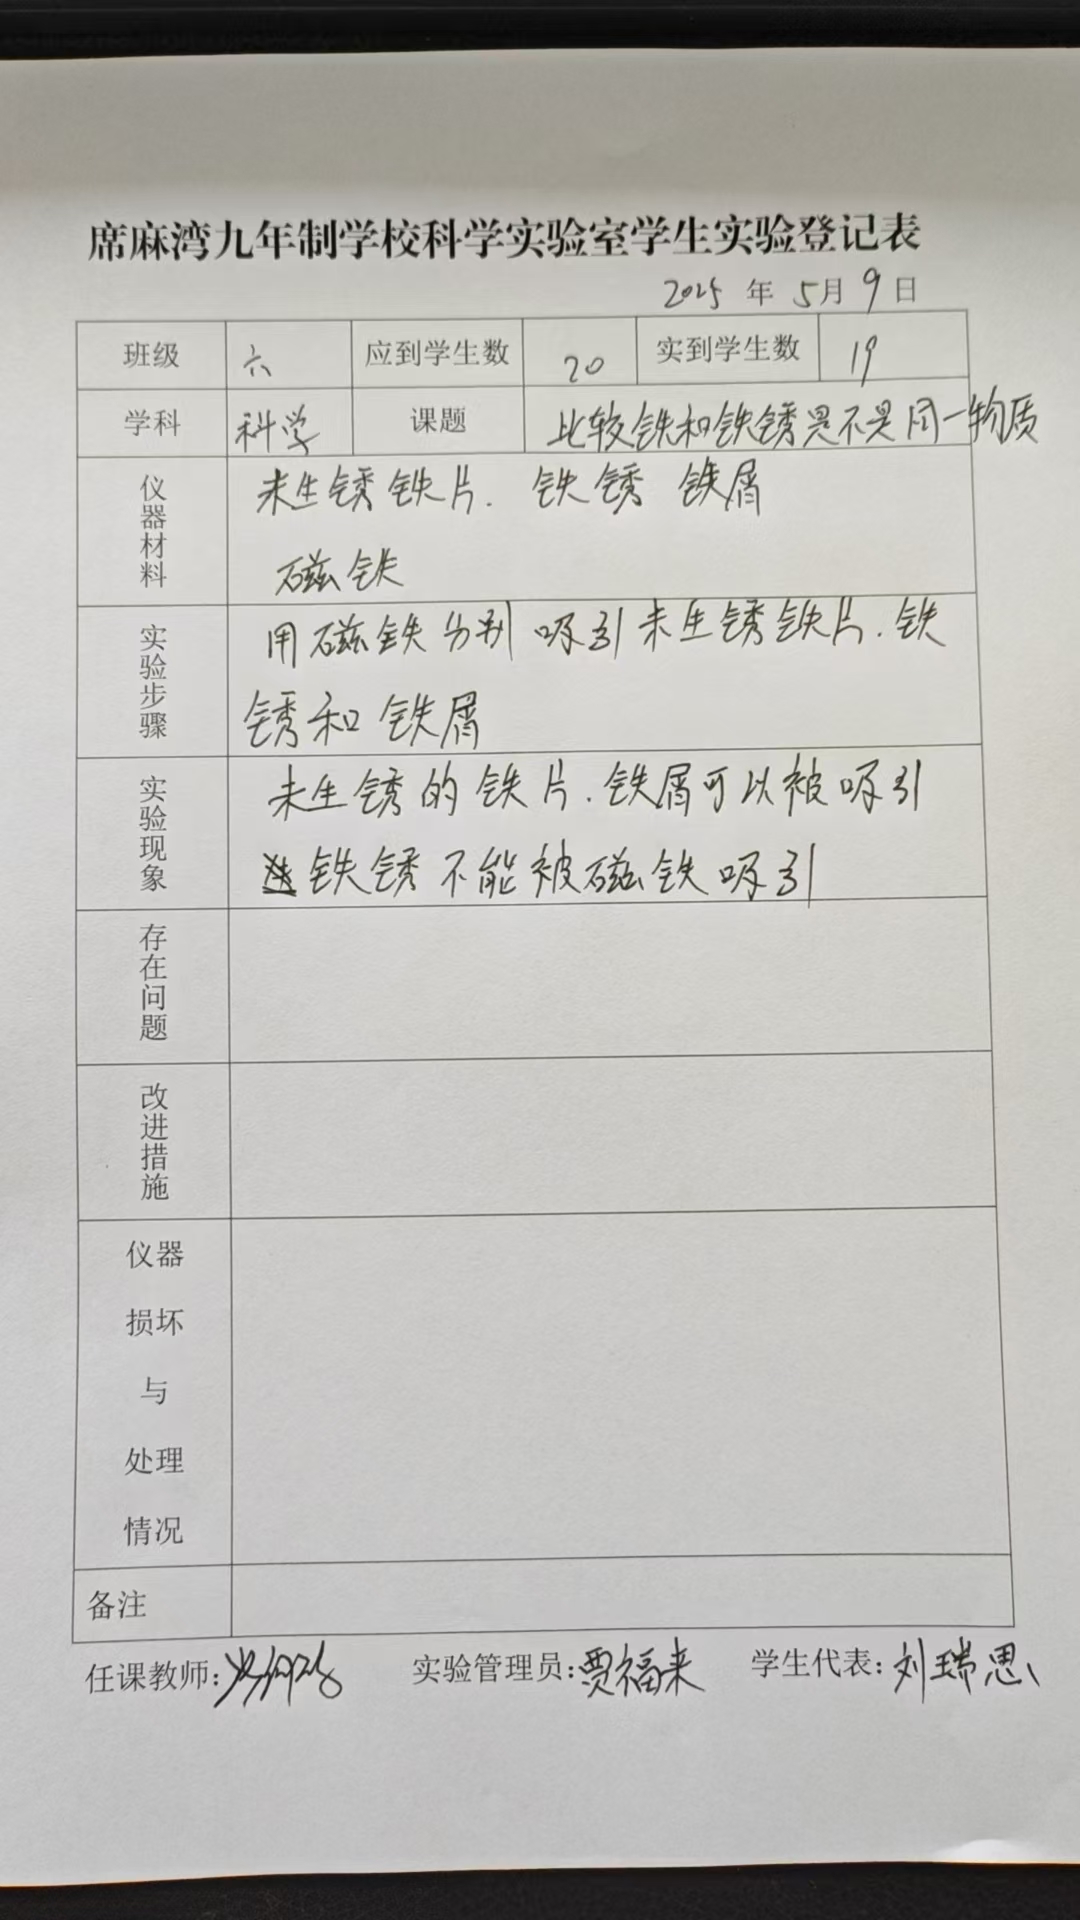 席麻湾九年制学校科学实验室学生实验登记表
2025 年 5月 9日
班级 六 应到学生数 20 实到学生数 19
学科 科学 课题 比较铁和铁锈是不是同一物质
仪器材料
未生锈铁片. 铁锈 铁屑
磁铁
实验步骤
用磁铁分别吸引未生锈铁片.铁
锈和铁屑
实验现象
未生锈的铁片.铁屑可以被吸引
铁锈不能被磁铁吸引
存在问题
改进措施
仪器
损坏
与
处理
情况
备注
任课教师: 实验管理员:贾福来 学生代表:刘瑞思